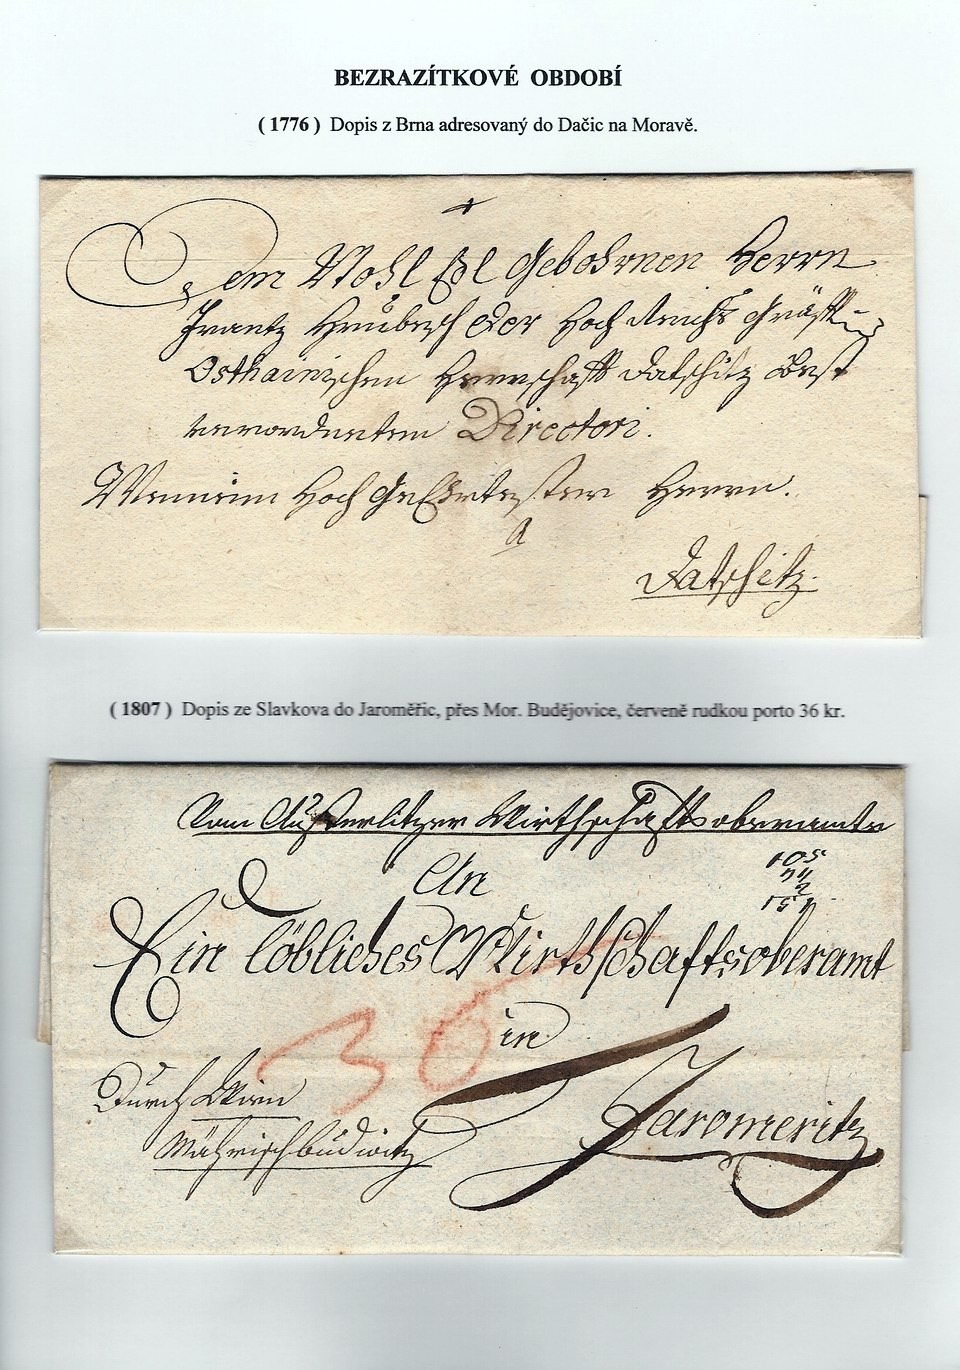 BEZRAZÍTKOVÉ OBDOBÍ
( 1776 ) Dopis z Brna adresovaný do Dačic na Moravě.
Dem Wohl Edl Gebohrnen Herrn
Frantz der Hoch Reichs Gräffl
Osthainischen Herrschafft Datschitz Best
verordneten Directori.
Meinem Hoch GeEhrtesten Herrn.
a
Datschitz.
( 1807 ) Dopis ze Slavkova do Jaroměřic, přes Mor. Budějovice, červeně rudkou porto 36 kr.
Vom Austerlitzer Wirthschaftsoberamte
An
105
Ein löbliches Wirthschaftsoberamt
36
in
Durch Wien
Jaromeritz
Mährischbudwitz